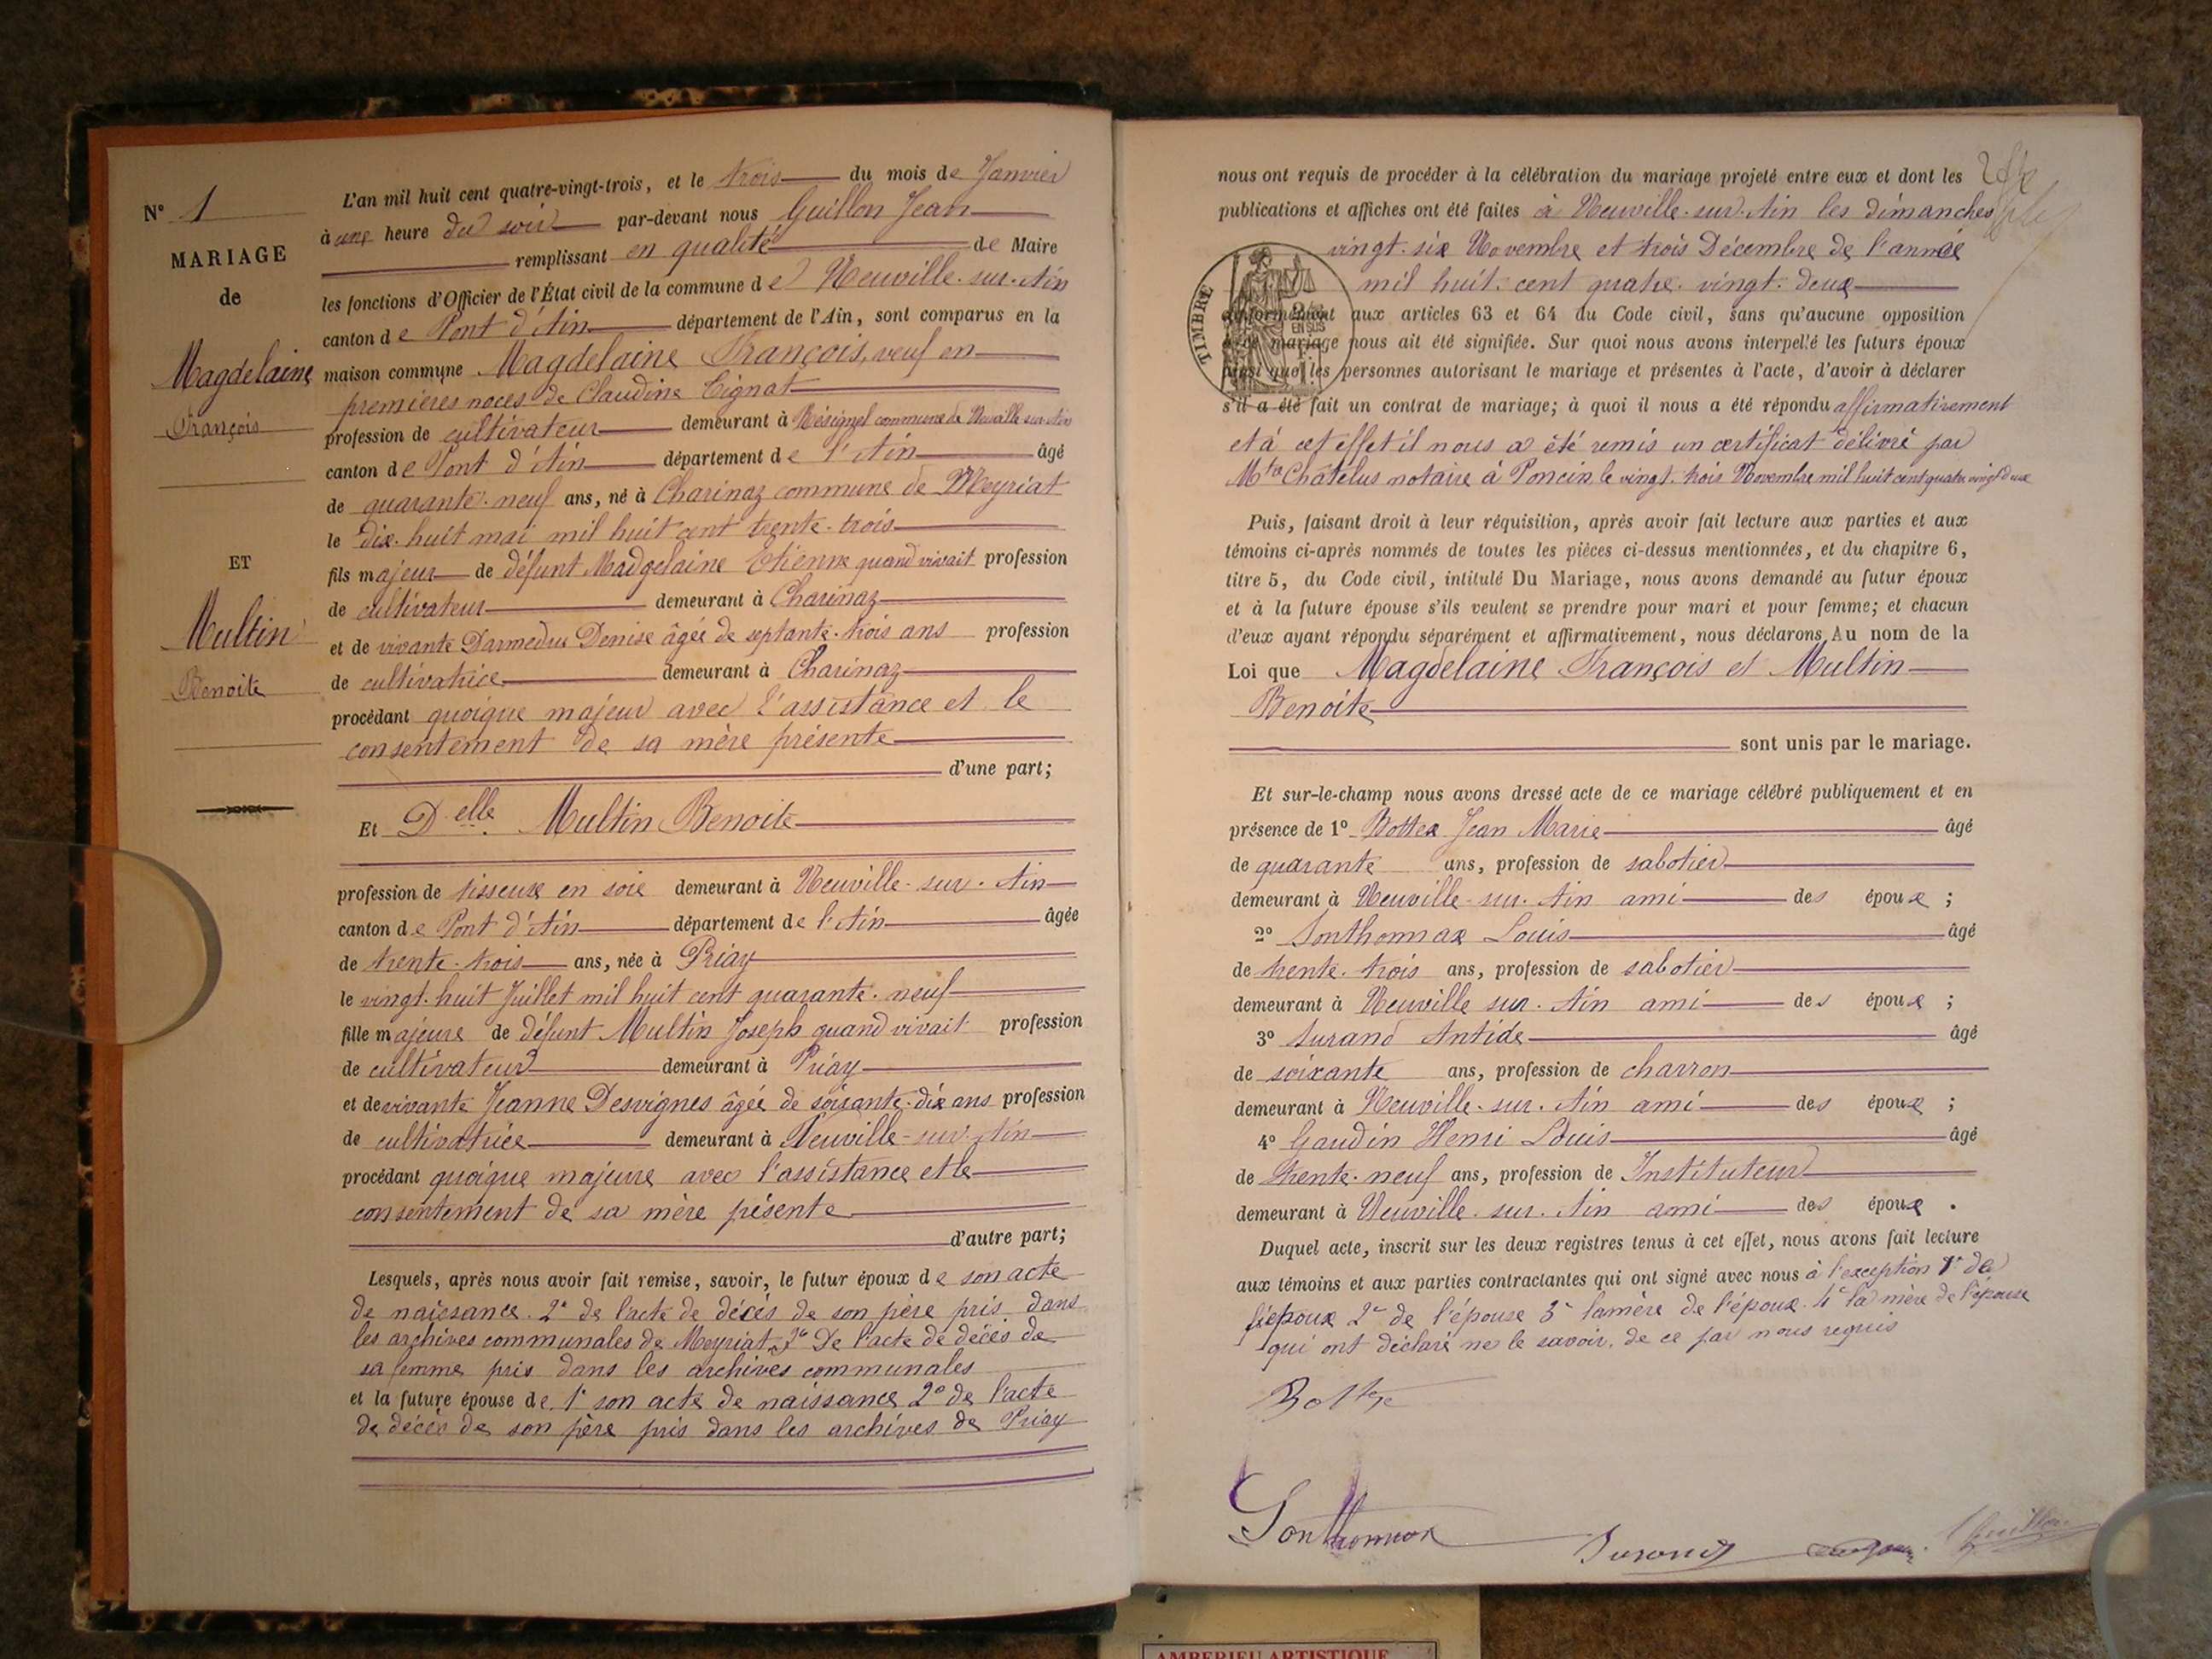 N° 1
MARIAGE
de
Magdelaine
François
ET
Multin
Benoite
L'an mil huit cent quatre-vingt-trois, et le trois du mois de Janvier
à une heure du soir par-devant nous Guillon Jean
remplissant en qualité de Maire
les fonctions d'Officier de l'État civil de la commune de Neuville-sur-Ain
canton de Pont d'Ain département de l'Ain, sont comparus en la
maison commune Magdelaine François, veuf en
premières noces de Claudine Cignat
profession de cultivateur demeurant à Résignel commune de Neuville-sur-Ain
canton de Pont d'Ain département de l'Ain âgé
de quarante-neuf ans, né à Charinaz commune de Meyriat
le dix-huit mai mil huit cent trente-trois
fils majeur de défunt Madgelaine Etienne quand vivait profession
de cultivateur demeurant à Charinaz
et de vivante Darmedru Denise âgée de septante-trois ans profession
de cultivatrice demeurant à Charinaz
procédant quoique majeur avec l'assistance et le
consentement de sa mère présente
d'une part;
Et Delle Multin Benoite
profession de tisseuse en soie demeurant à Neuville-sur-Ain
canton de Pont d'Ain département de l'Ain âgée
de trente-trois ans, née à Priay
le vingt-huit Juillet mil huit cent quarante-neuf
fille majeure de défunt Multin Joseph quand vivait profession
de cultivateur demeurant à Priay
et de vivante Jeanne Desvignes âgée de soisante-dix ans profession
de cultivatrice demeurant à Neuville-sur-Ain
procédant quoique majeure avec l'assistance et le
consentement de sa mère présente
d'autre part;
Lesquels, après nous avoir fait remise, savoir, le futur époux de son acte
de naissance. 2° de l'acte de décès de son père pris dans
les archives communales de Meyriat 3° De l'acte de décès de
sa femme pris dans les archives communales
et la future épouse de 1° son acte de naissance 2° de l'acte
de décès de son père pris dans les archives de Priay
nous ont requis de procéder à la célébration du mariage projeté entre eux et dont les
publications et affiches ont été faites à Neuville-sur-Ain les dimanches
vingt-six Novembre et trois Décembre de l'année
mil huit cent quatre-vingt-deux
TIMBRE
EN SUS
conformément aux articles 63 et 64 du Code civil, sans qu'aucune opposition
à ce mariage nous ait été signifiée. Sur quoi nous avons interpellé les futurs époux
ainsi que les personnes autorisant le mariage et présentes à l'acte, d'avoir à déclarer
s'il a été fait un contrat de mariage; à quoi il nous a été répondu affirmativement
et à cet effet il nous a été remis un certificat délivré par
Mtre Chatelus notaire à Poncin le vingt-trois Novembre mil huit cent quatre vingt deux
Puis, faisant droit à leur réquisition, après avoir fait lecture aux parties et aux
témoins ci-après nommés de toutes les pièces ci-dessus mentionnées, et du chapitre 6,
titre 5, du Code civil, intitulé Du Mariage, nous avons demandé au futur époux
et à la future épouse s'ils veulent se prendre pour mari et pour femme; et chacun
d'eux ayant répondu séparément et affirmativement, nous déclarons, Au nom de la
Loi que Magdelaine François et Multin
Benoite
sont unis par le mariage.
Et sur-le-champ nous avons dressé acte de ce mariage célébré publiquement et en
présence de 1° Bottex Jean Marie âgé
de quarante ans, profession de sabotier
demeurant à Neuville-sur-Ain ami des époux ;
2° Sonthonnax Louis âgé
de trente-trois ans, profession de sabotier
demeurant à Neuville sur-Ain ami des époux ;
3° Surand Antide âgé
de soixante ans, profession de charron
demeurant à Neuville-sur-Ain ami des époux ;
4° Gaudin Henri Louis âgé
de trente-neuf ans, profession de Instituteur
demeurant à Neuville-sur-Ain ami des époux .
Duquel acte, inscrit sur les deux registres tenus à cet effet, nous avons fait lecture
aux témoins et aux parties contractantes qui ont signé avec nous à l'exception 1° de
l'époux 2° de l'épouse 3° la mère de l'époux 4° la mère de l'épouse
qui ont déclaré ne le savoir, de ce par nous requis
Bottex
Sonthonnax
Surand
Guillon
AMBERIEU ARTISTIQUE